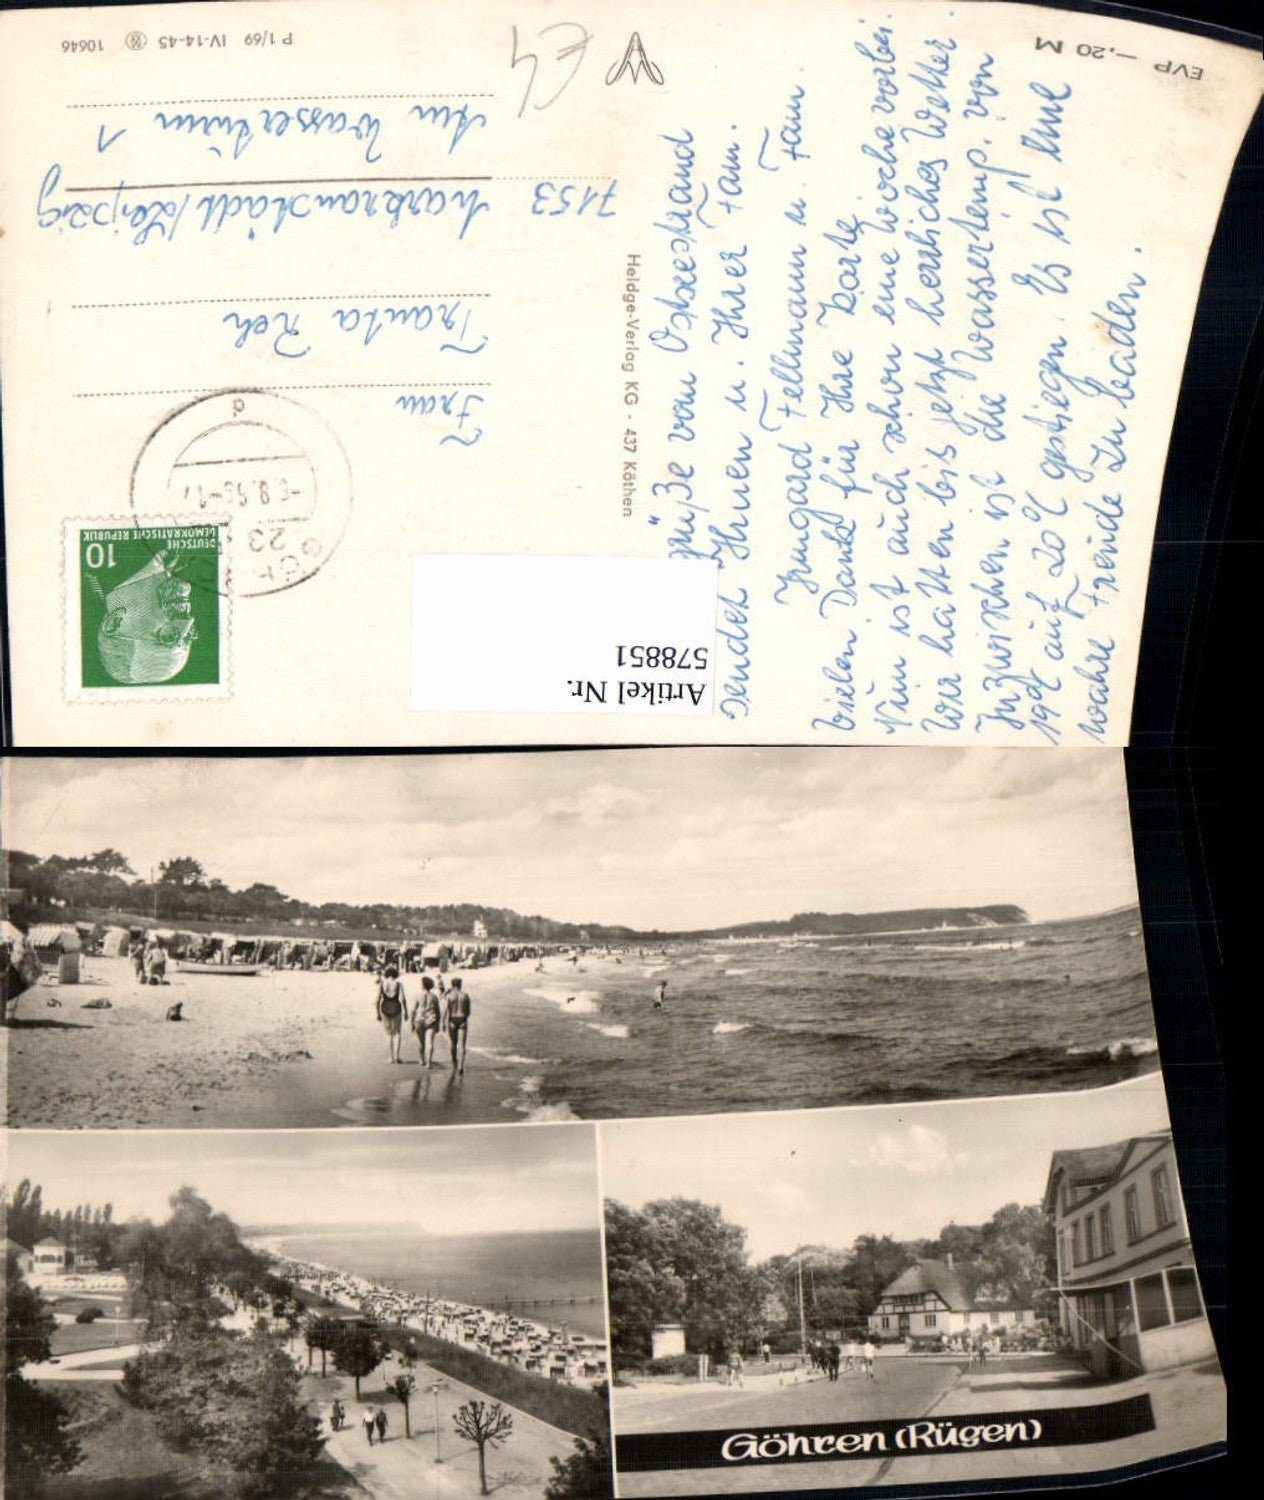 EVP –,20 M
P 1/69 IV-14-45 10646
E4
Heldge-Verlag KG · 437 Köthen
Frau
Trauta Reh
7153 Markranstädt/Leipzig
Am Wasserturm 1
DEUTSCHE
DEMOKRATISCHE REPUBLIK
10
Artikel Nr.
578851
grüße vom Ostseestrand
sendet Ihnen u. Ihrer Fam.
Irmgard Fellmann u. Fam.
Vielen Dank für Ihre Karte
Nun ist auch schon eine Woche vorbei.
Wir hatten bis jetzt herrliches Wetter.
Inzwischen ist die Wassertemp. von
19°C auf 20°C gestiegen. Es ist eine
wahre Freude zu baden.
Göhren (Rügen)